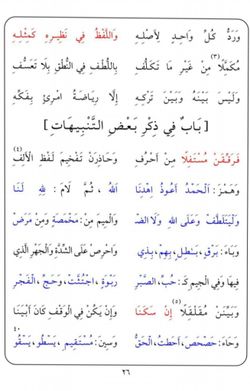 وَرَدُّ كُلِّ وَاحِدٍ لِأَصْلِهِ وَاللَّفْظُ فِي نَظِيرِهِ كَمِثْلِهِ
مُكَمَّلًا(٣) مِنْ غَيْرِ مَا تَكَلُّفِ بِاللُّطْفِ فِي النُّطْقِ بِلَا تَعَسُّفِ
وَلَيْسَ بَيْنَهُ وَبَيْنَ تَرْكِهِ إِلَّا رِيَاضَةُ امْرِئٍ بِفَكِّهِ
[بَابٌ فِي ذِكْرِ بَعْضِ التَّنْبِيهَاتِ]
فَرَقِّقَنْ مُسْتَفِلًا مِنْ أَحْرُفِ وَحَاذِرَنْ تَفْخِيمَ لَفْظِ الْأَلِفِ(٤)
وَهَمْزَ: اَلْحَمْدُ أَعُوذُ اِهْدِنَا اَللهُ، ثُمَّ لَامَ: لِلهِ لَنَا
وَلْيَتَلَطَّفْ وَعَلَى اللهِ وَلَا الضْ وَالْمِيمَ مِنْ: مَخْمَصَةٍ وَمِنْ مَرَضْ
وَبَاءَ: بَرْقٍ، بَاطِلٍ، بِهِمْ، بِذِي وَاحْرِصْ عَلَى الشِّدَّةِ وَالْجَهْرِ الَّذِي
فِيهَا وَفِي الْجِيمِ كَـ: حُبِّ، الصَّبْرِ رَبْوَةٍ، اجْتُثَّتْ، وَحَجِّ، الْفَجْرِ
وَبَيِّنَنْ مُقَلْقَلًا(٥) إِنْ سَكَنَا وَإِنْ يَكُنْ فِي الْوَقْفِ كَانَ أَبْيَنَا
وَحَاءَ: حَصْحَصَ، أَحَطْتُ، الْحَقُّ وَسِينَ: مُسْتَقِيمِ، يَسْطُو، يَسْقُو ٤٠
٢٦